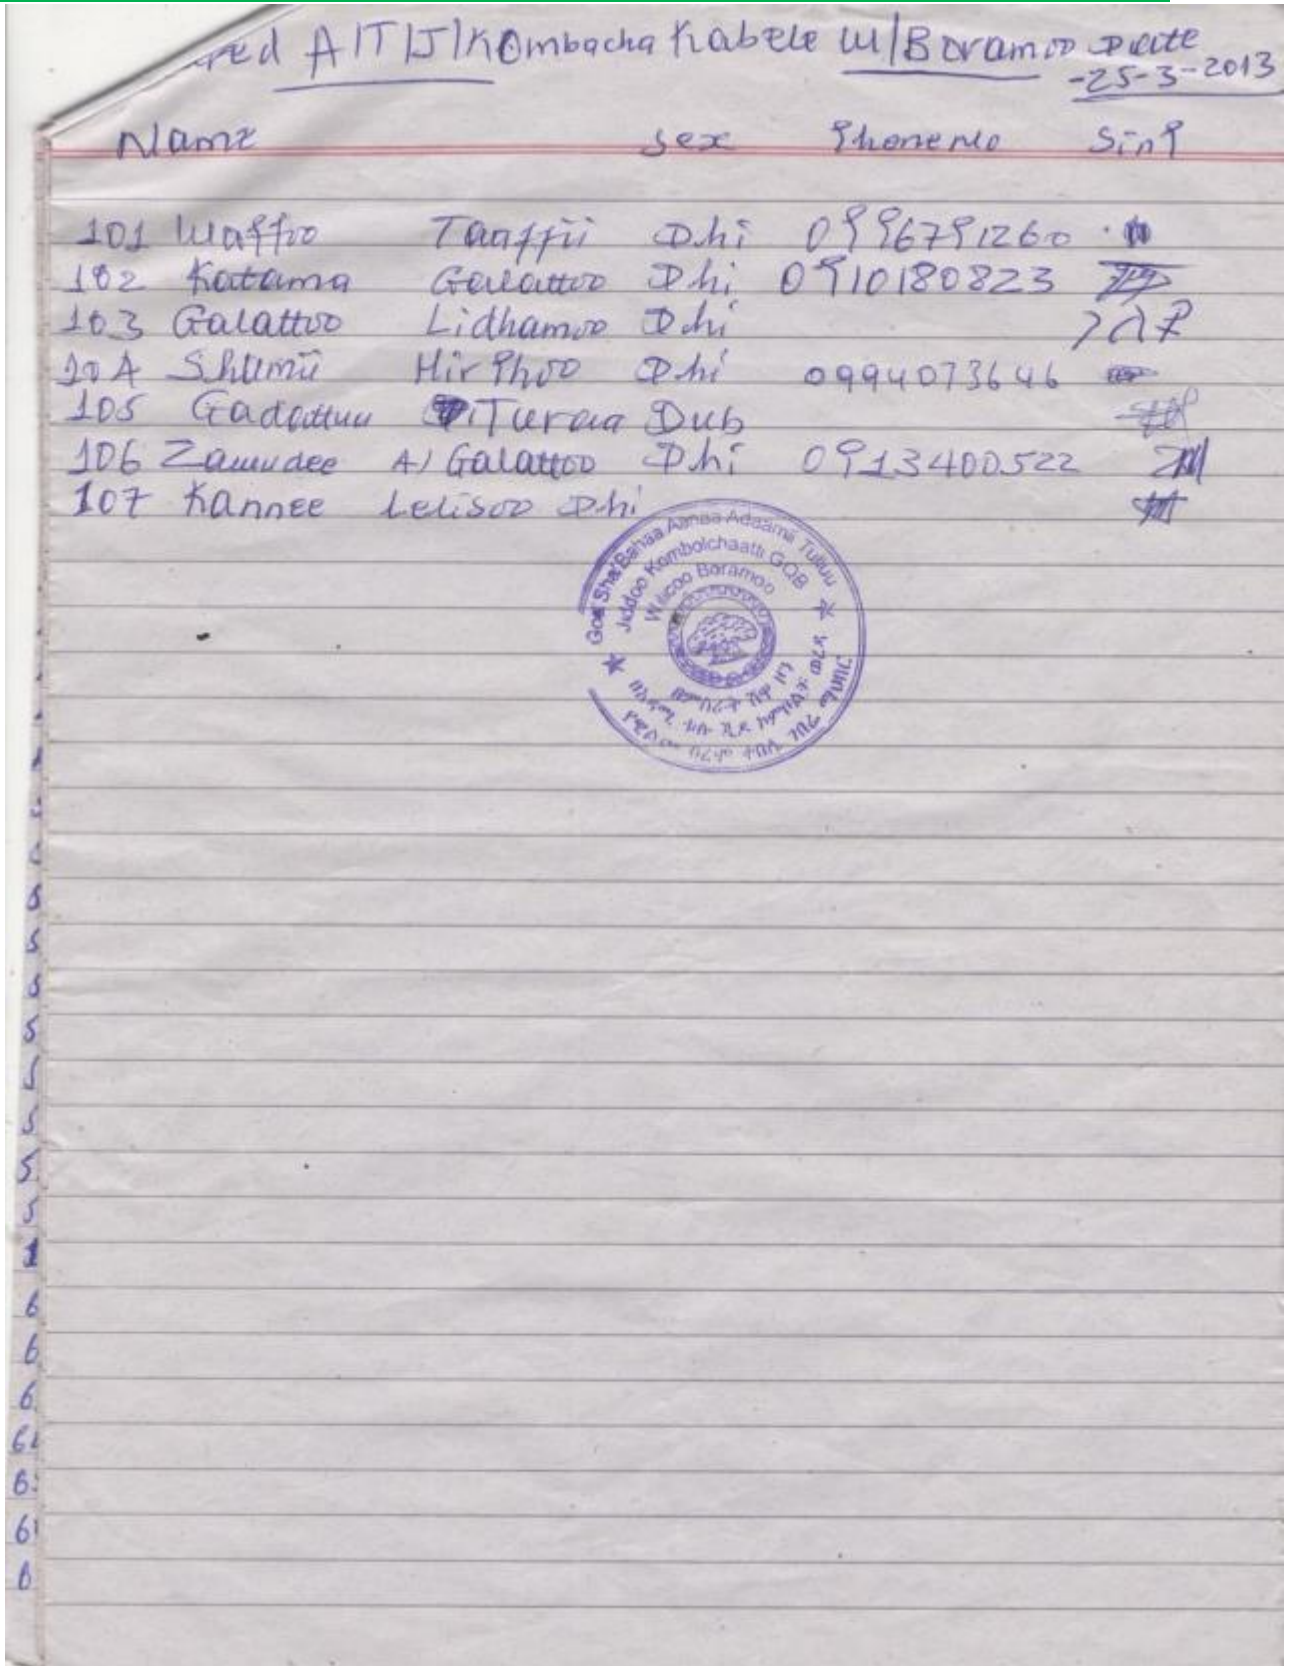 A/T/J/Kombacha Kabele W/Boramoo Date
-25-3-2013
Name sex Phone No Sinp
101 Waffoo Taaffii Dhi 0996791260
102 Katama Galattoo Dhi 0910180823
103 Galattoo Lidhamoo Dhi
104 Shumii Hirphoo Dhi 0994073646
105 Gadattuu Turaa Dub
106 Zawudee A/Galattoo Dhi 0913400522
107 Kannee Lelisoo Dhi
Aanaa Adaamii Tulluu
Jiddoo Kombolchaatti GQB
Boramoo